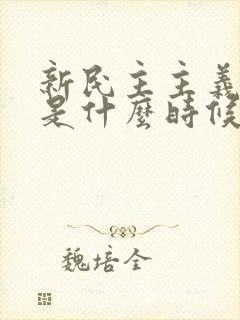 新民主主義
是什麼時候
魏培全